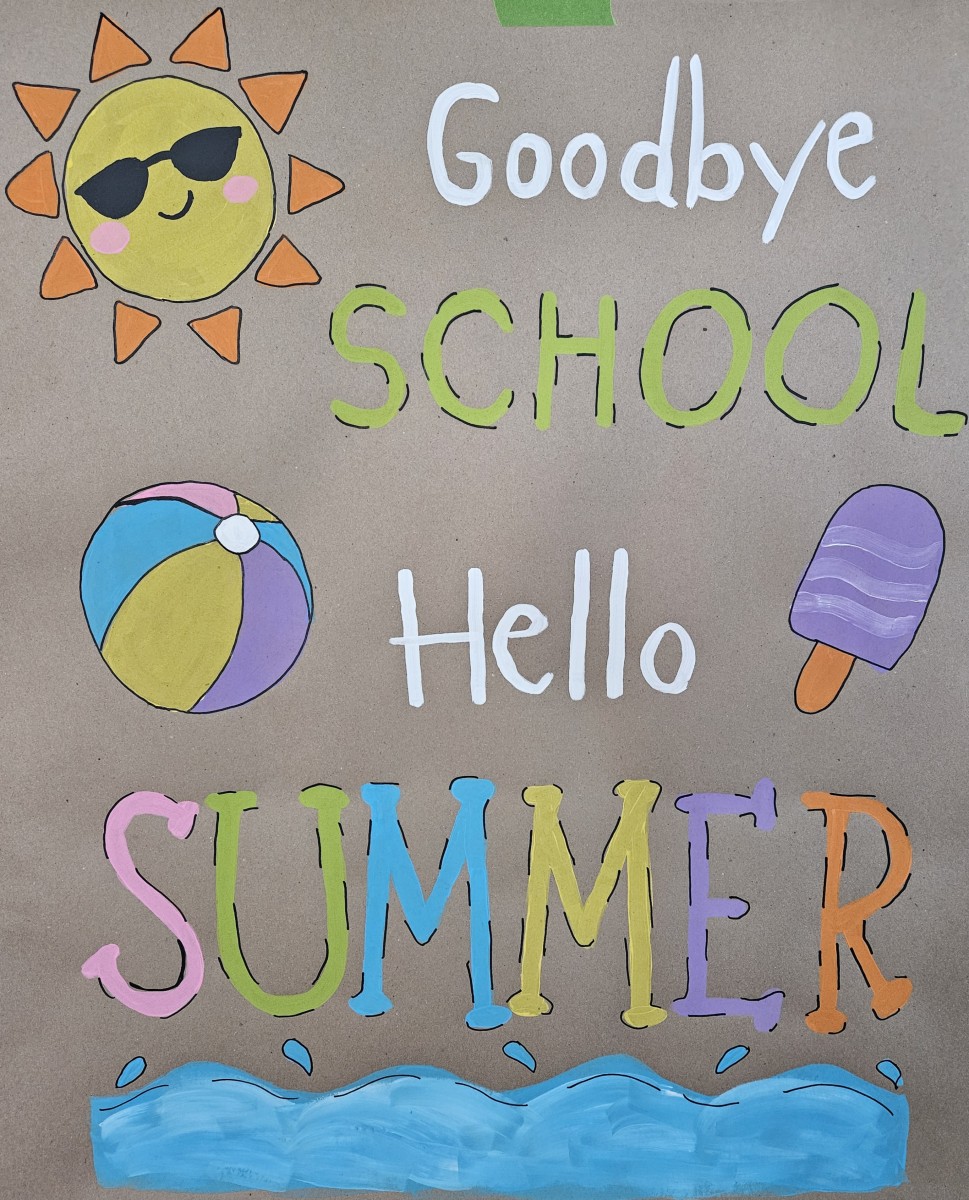 Goodbye
SCHOOL
Hello
SUMMER